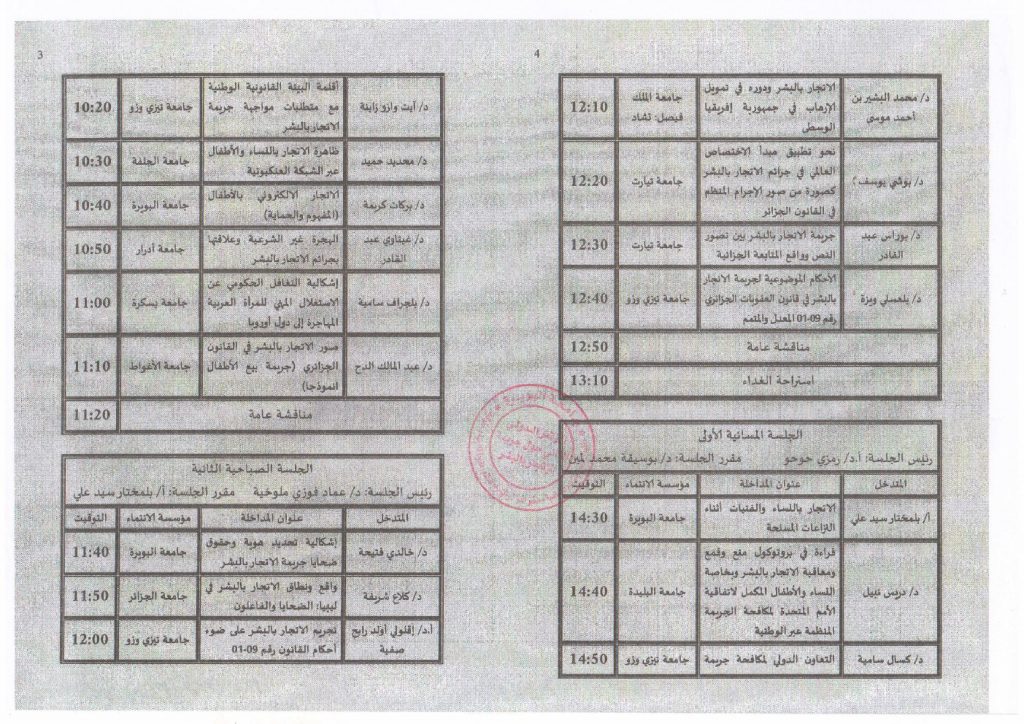 3
د/ آيت وازو زاينة
أقلمة البيئة القانونية الوطنية
مع متطلبات مواجهة جريمة
الاتجار بالبشر
جامعة تيزي وزو
10:20
د/ محديد حميد
ظاهرة الاتجار بالنساء والأطفال
عبر الشبكة العنكبوتية
جامعة الجلفة
10:30
د/ بركات كريمة
الاتجار الالكتروني بالأطفال
(المفهوم والحماية)
جامعة البويرة
10:40
د/ غيتاوي عبد
القادر
الهجرة غير الشرعية وعلاقتها
بجرائم الاتجار بالبشر
جامعة أدرار
10:50
د/ بلجراف سامية
إشكالية التغافل الحكومي عن
الاستغلال المهني للمرأة العربية
المهاجرة إلى دول أوروبا
جامعة بسكرة
11:00
د/ عبد المالك الدح
صور الاتجار بالبشر في القانون
الجزائري (جريمة بيع الأطفال
انموذجا)
جامعة الأغواط
11:10
مناقشة عامة
11:20
الجلسة الصباحية الثانية
رئيس الجلسة: د/ عماد فوزي ملوخية مقرر الجلسة: أ/ بلمختار سيد علي
المتدخل
عنوان المداخلة
مؤسسة الانتماء
التوقيت
د/ خالدي فتيحة
إشكالية تحديد هوية وحقوق
ضحايا جريمة الاتجار بالبشر
جامعة البويرة
11:40
د/ كلاع شريفة
واقع ونطاق الاتجار بالبشر في
ليبيا: الضحايا والفاعلون
جامعة الجزائر
11:50
أ.د/ إقلولي أولد رابح
صفية
تجريم الاتجار بالبشر على ضوء
أحكام القانون رقم 09-01
جامعة تيزي وزو
12:00
4
د/ محمد البشير بن
أحمد موسى
الاتجار بالبشر ودوره في تمويل
الإرهاب في جمهورية إفريقيا
الوسطى
جامعة الملك
فيصل: تشاد
12:10
د/ بوشي يوسف
نحو تطبيق مبدأ الاختصاص
العالمي في جرائم الاتجار بالبشر
كصورة من صور الإجرام المنظم
في القانون الجزائر
جامعة تيارت
12:20
د/ بوراس عبد
القادر
جريمة الاتجار بالبشر بين تصور
النص وواقع المتابعة الجزائية
جامعة تيارت
12:30
د/ بلعسلي ويزة
الأحكام الموضوعية لجريمة الاتجار
بالبشر في قانون العقوبات الجزائري
رقم 09-01 المعدل والمتمم
جامعة تيزي وزو
12:40
مناقشة عامة
12:50
استراحة الغداء
13:10
الجلسة المسائية الأولى
رئيس الجلسة: أ.د/ رمزي حوحو مقرر الجلسة: د/ بوسيقة محمد لمين
المتدخل
عنوان المداخلة
مؤسسة الانتماء
التوقيت
أ/ بلمختار سيد علي
الاتجار بالنساء والفتيات أثناء
النزاعات المسلحة
جامعة البويرة
14:30
د/ دريس نبيل
قراءة في بروتوكول منع وقمع
ومعاقبة الاتجار بالبشر وبخاصة
النساء والأطفال المكمل لاتفاقية
الأمم المتحدة لمكافحة الجريمة
المنظمة عبر الوطنية
جامعة البليدة
14:40
د/ كسال سامية
التعاون الدولي لمكافحة جريمة
جامعة تيزي وزو
14:50